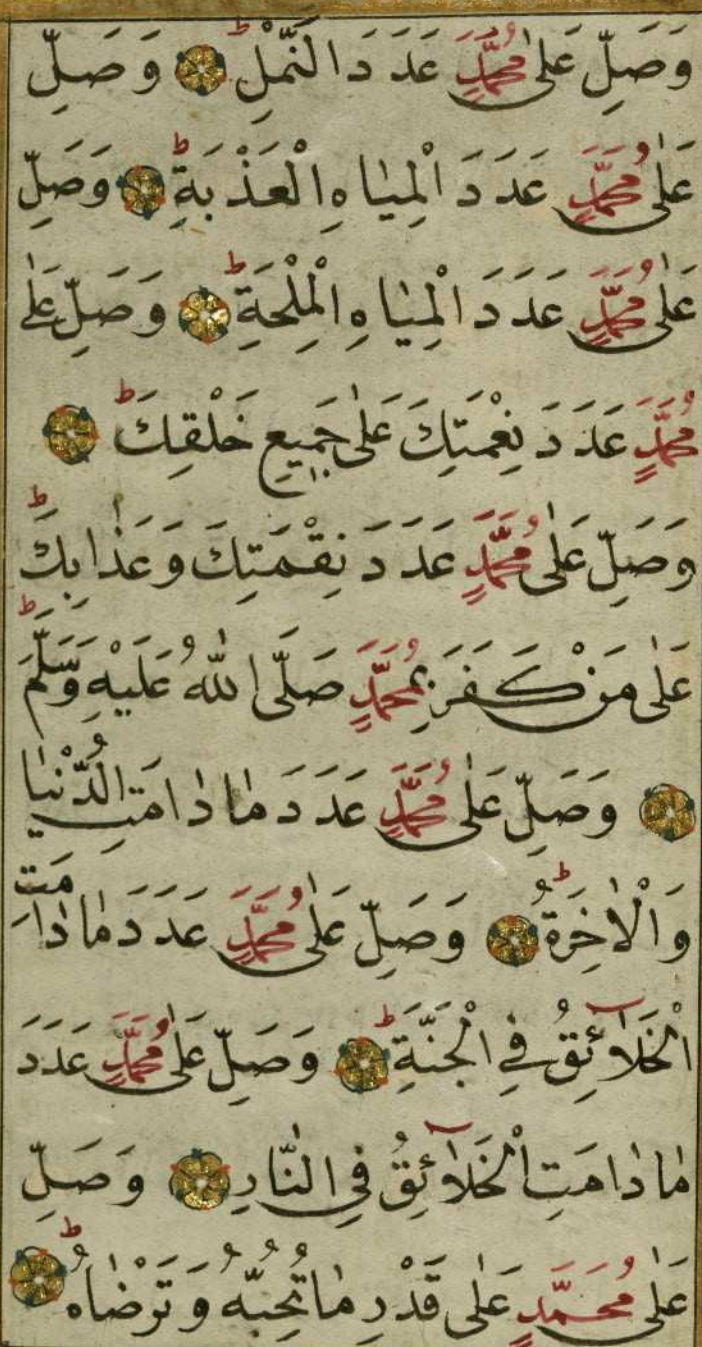 وَصَلِّ عَلٰى مُحَمَّدٍ عَدَدَ النَّمْلِ ط وَصَلِّ
عَلٰى مُحَمَّدٍ عَدَدَ الْمِيٰاهِ الْعَذْبَةِ ط وَصَلِّ
عَلٰى مُحَمَّدٍ عَدَدَ الْمِيٰاهِ الْمِلْحَةِ ط وَصَلِّ عَلٰى
مُحَمَّدٍ عَدَدَ نِعْمَتِكَ عَلٰى جَمِيعِ خَلْقِكَ ط
وَصَلِّ عَلٰى مُحَمَّدٍ عَدَدَ نِقْمَتِكَ وَعَذٰابِكَ ط
عَلٰى مَنْ كَفَرَ بِمُحَمَّدٍ صَلَّى اللّٰهُ عَلَيْهِ وَسَلَّمَ ط
وَصَلِّ عَلٰى مُحَمَّدٍ عَدَدَ مٰا دٰامَتِ الدُّنْيٰا
وَالْاٰخِرَةُ ط وَصَلِّ عَلٰى مُحَمَّدٍ عَدَدَ مٰا دٰامَتِ
الْخَلٰٓائِقُ فِي الْجَنَّةِ ط وَصَلِّ عَلٰى مُحَمَّدٍ عَدَدَ
مٰا دٰامَتِ الْخَلٰٓائِقُ فِي النّٰارِ وَصَلِّ
عَلٰى مُحَمَّدٍ عَلٰى قَدْرِ مٰا تُحِبُّهُ وَتَرْضٰاهُ ط